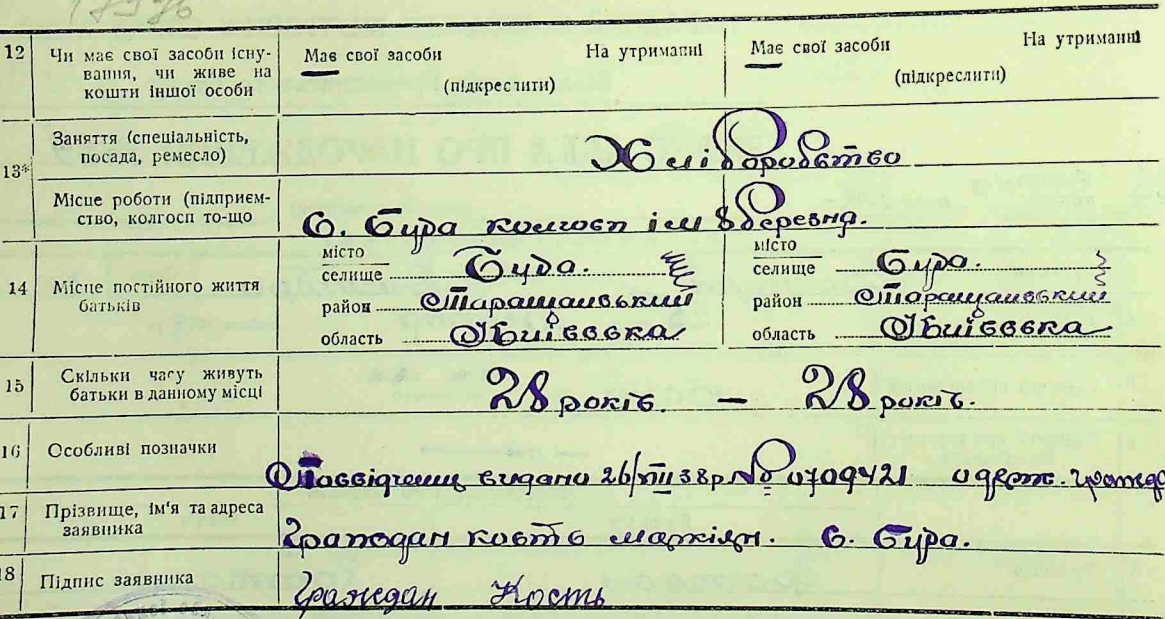 12 Чи має свої засоби існування, чи живе на кошти іншої особи
Має свої засоби На утриманні Має свої засоби На утриманні
(підкреслити) (підкреслити)
13* Заняття (спеціальність, посада, ремесло)
Хліборобство
Місце роботи (підприємство, колгосп то-що
С. Бура колгосп ім 8 березня.
14 Місце постійного життя батьків
місто
селище Бура.
район Таращанський
область Київська
місто
селище Бура.
район Таращанський
область Київська
15 Скільки часу живуть батьки в данному місці
28 років. — 28 років.
16 Особливі позначки
видано 26/VIII 38р № 0709421 одерж.
17 Прізвище, ім'я та адреса заявника
Кость С. Бура.
18 Підпис заявника
Граждан Кость